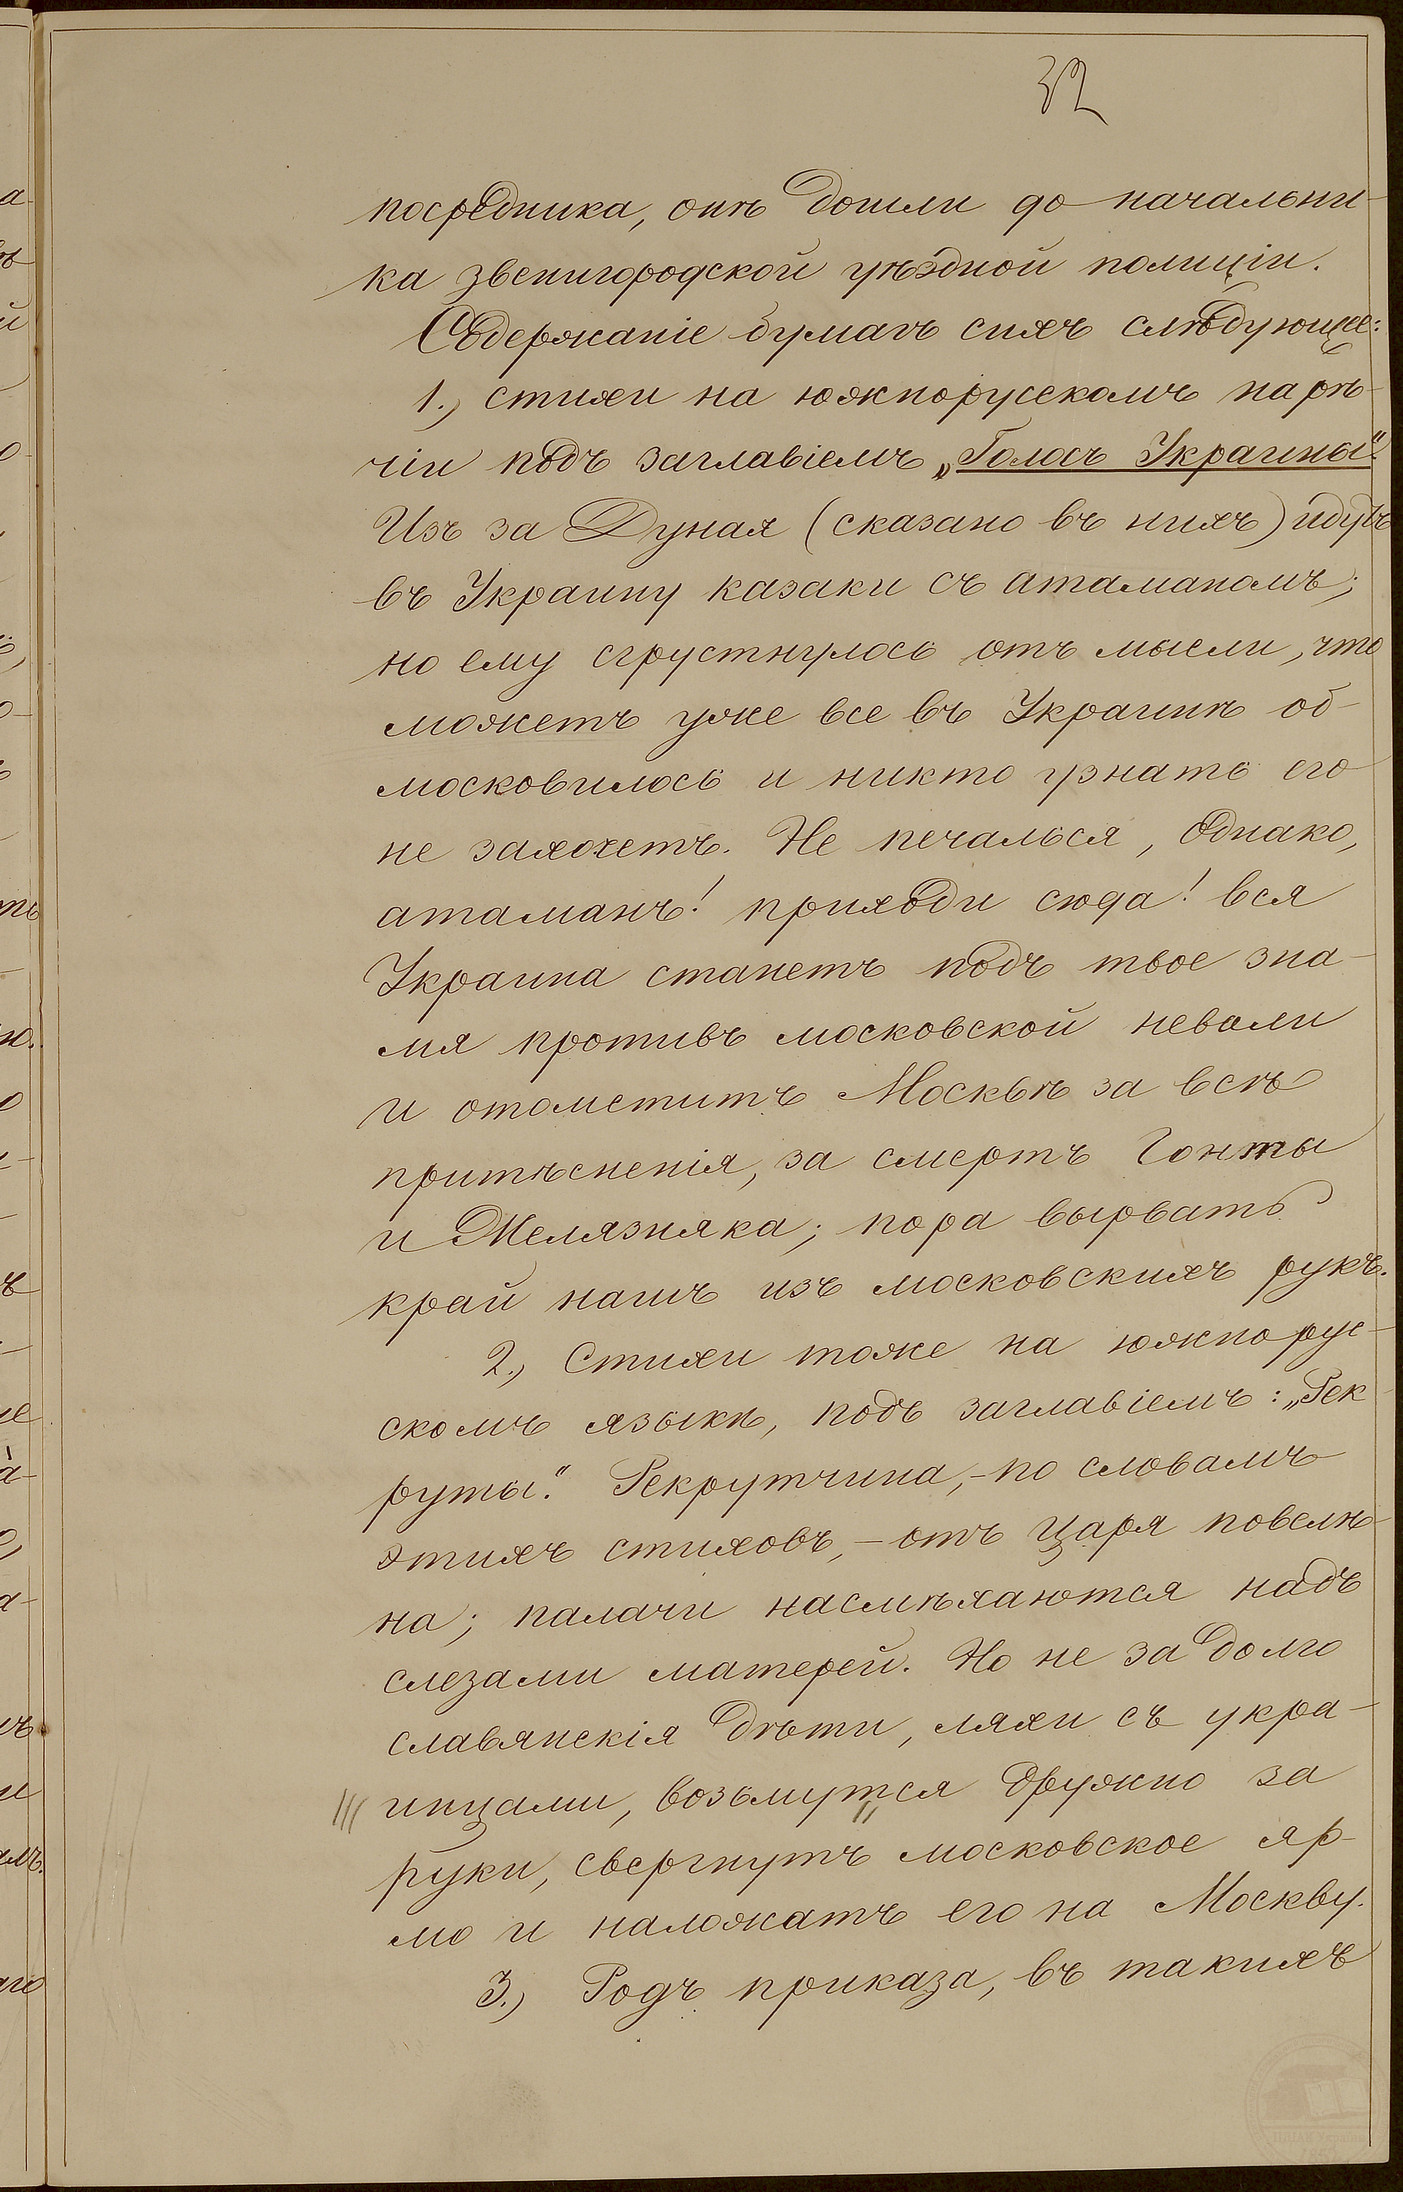 32
посредника, онѣ дошли до начальни-
ка звенигородской уѣздной полиціи.
Содержаніе бумагъ сихъ слѣдующее:
1., стихи на южнорусскомъ нарѣ-
чіи подъ заглавіемъ „Голосъ Украины“.
Изъ за Дуная (сказано въ нихъ) идутъ
въ Украину казаки съ атаманомъ;
но ему сгрустнулось отъ мысли, что
можетъ уже все въ Украинѣ об-
московилось и никто узнать его
не захочетъ. Не печалься, однако,
атаманъ! приходи сюда! вся
Украина станетъ подъ твое зна-
мя противъ московской неволи
и отомститъ Москвѣ за всѣ
притѣсненія, за смерть Гонты
и Желязняка; пора вырвать
край нашъ изъ московскихъ рукъ.
2., Стихи тоже на южнорус-
скомъ языкѣ, подъ заглавіемъ: „Рек-
руты“. Рекрутчина, - по словамъ
этихъ стиховъ, - отъ царя повелѣ-
на; палачи насмѣхаются надъ
слезами матерей. Но не за долго
славянскія дѣти, ляхи съ укра-
инцами, возьмутся дружно за
руки, свергнутъ московское яр-
мо и наложатъ его на Москву.
3., Родъ приказа, въ такихъ